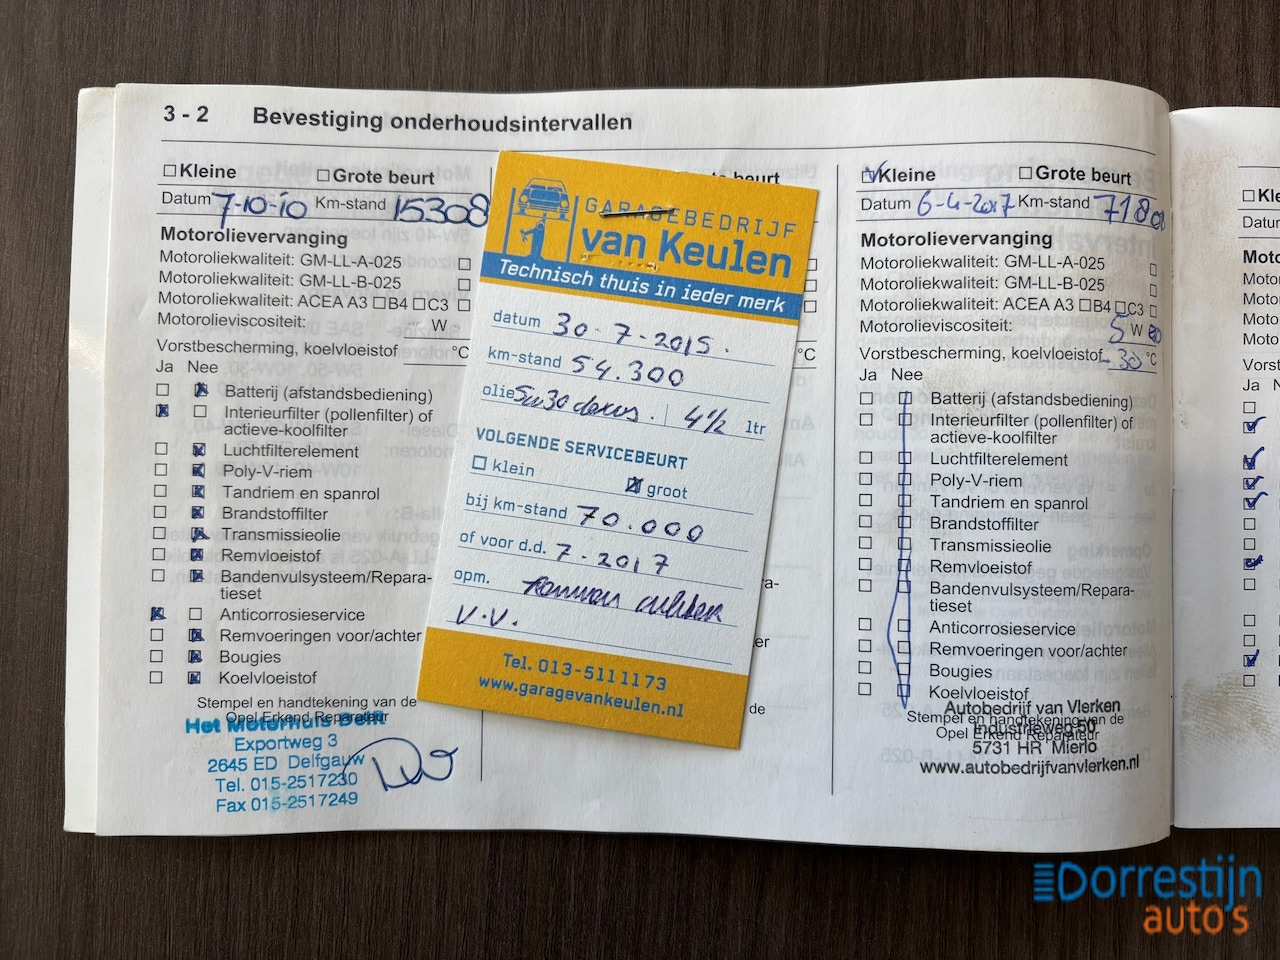 3 - 2 Bevestiging onderhoudsintervallen
Kleine Grote beurt
Datum 7-10-10 Km-stand 15308
Motorolievervanging
Motoroliekwaliteit: GM-LL-A-025
Motoroliekwaliteit: GM-LL-B-025
Motoroliekwaliteit: ACEA A3 B4 C3
Motorolieviscositeit: W
Vorstbescherming, koelvloeistof °C
Ja Nee
Batterij (afstandsbediening)
Interieurfilter (pollenfilter) of
actieve-koolfilter
Luchtfilterelement
Poly-V-riem
Tandriem en spanrol
Brandstoffilter
Transmissieolie
Remvloeistof
Bandenvulsysteem/Repara-
tieset
Anticorrosieservice
Remvoeringen voor/achter
Bougies
Koelvloeistof
Stempel en handtekening van de
Opel Erkend Reparateur
Het Motorhuis Delft
Exportweg 3
2645 ED Delfgauw
Tel. 015-2517230
Fax 015-2517249
beurt
°C
ra-
er
de
GARAGEBEDRIJF
van Keulen
Technisch thuis in ieder merk
datum 30-7-2015.
km-stand 54.300
olie 5w30 dexos. 4½ ltr
VOLGENDE SERVICEBEURT
klein groot
bij km-stand 70.000
of voor d.d. 7-2017
opm.
V.V.
Tel. 013-5111173
www.garagevankeulen.nl
Kleine Grote beurt
Datum 6-4-2017 Km-stand
Motorolievervanging
Motoroliekwaliteit: GM-LL-A-025
Motoroliekwaliteit: GM-LL-B-025
Motoroliekwaliteit: ACEA A3 B4 C3
Motorolieviscositeit: 5 W
Vorstbescherming, koelvloeistof -30 °C
Ja Nee
Batterij (afstandsbediening)
Interieurfilter (pollenfilter) of
actieve-koolfilter
Luchtfilterelement
Poly-V-riem
Tandriem en spanrol
Brandstoffilter
Transmissieolie
Remvloeistof
Bandenvulsysteem/Repara-
tieset
Anticorrosieservice
Remvoeringen voor/achter
Bougies
Koelvloeistof
Stempel en handtekening van de
Opel Erkend Reparateur
Autobedrijf van Vlerken
Industrieweg 50
5731 HR Mierlo
www.autobedrijfvanvlerken.nl
Kle
Datum
Moto
Motor
Motor
Motor
Moto
Vorst
Ja N
Dorrestijn
auto's